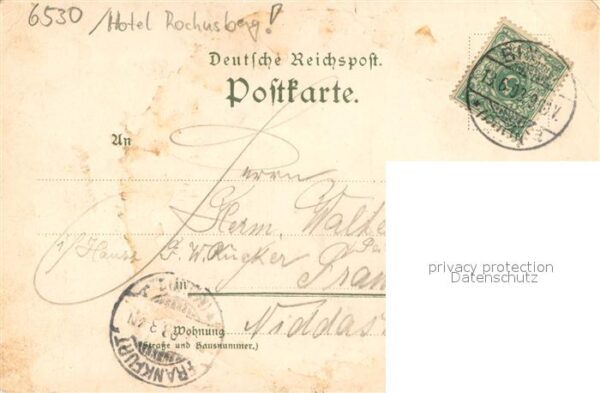 6530 /Hotel Rochusberg!
Deutsche Reichspost.
Postkarte.
An
Herrn
Herm. Walte
i/ Hause F. W. Rücker
Fran
in
Niddas
Wohnung
(Straße und Hausnummer.)
FRANKFURT
privacy protection
Datenschutz